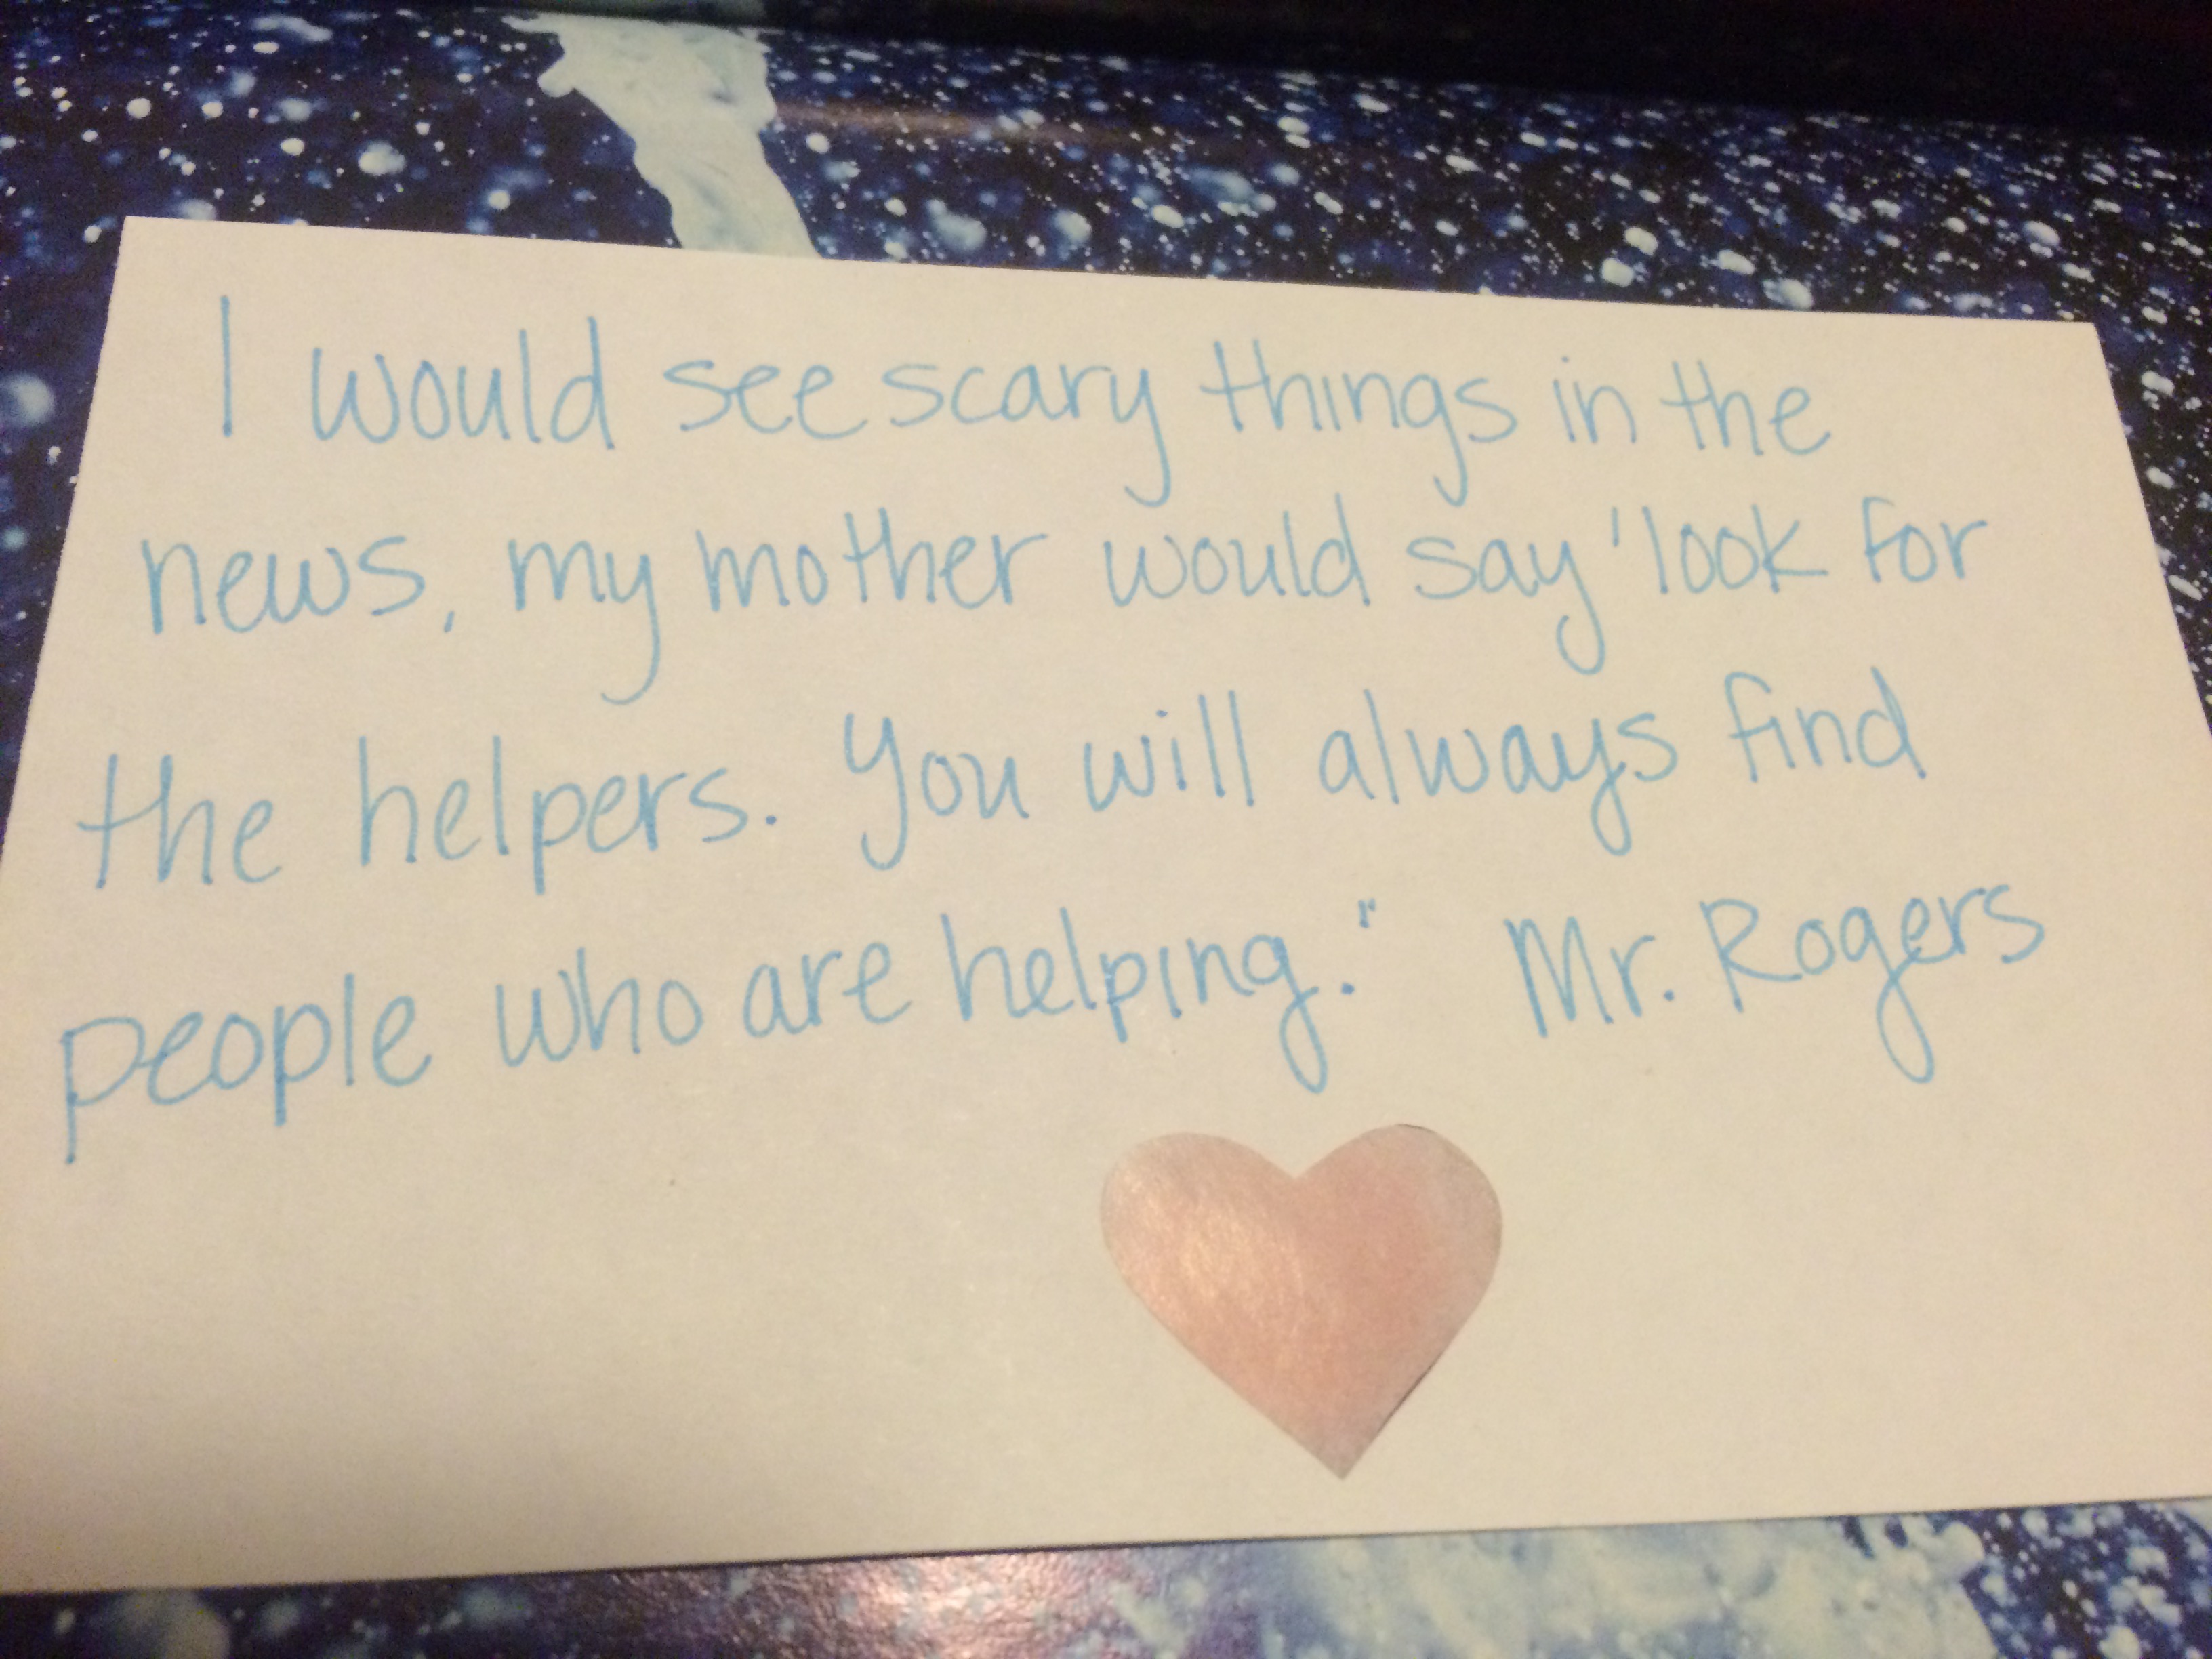 I would see scary things in the
news, my mother would say 'look for
the helpers. You will always find
people who are helping.'" Mr. Rogers